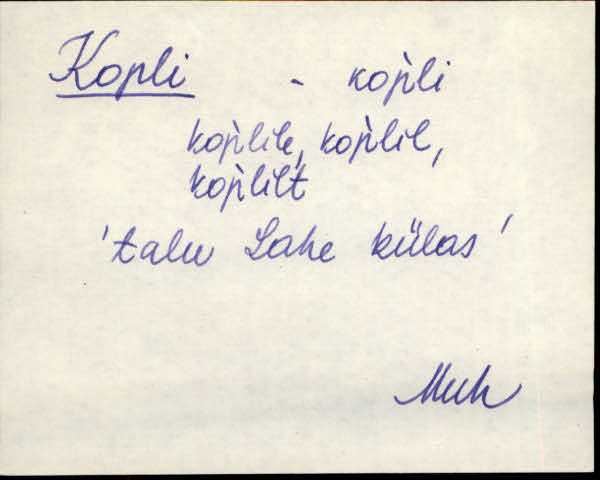 Kopli - kop̀li
kop̀lile, kop̀lil,
kop̀lilt
'talu Lahe külas'
Muh